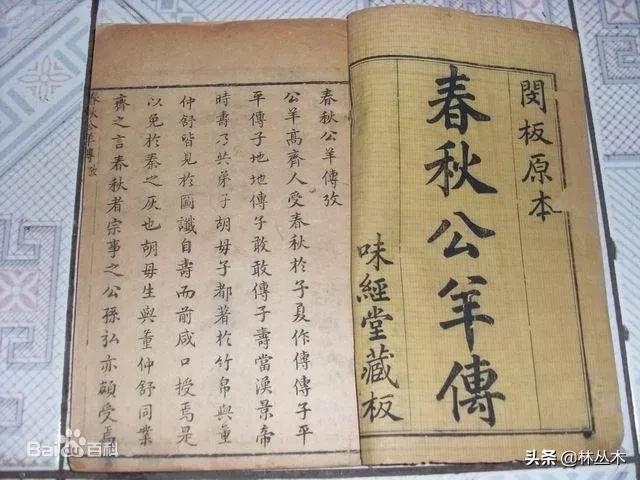 閔板原本
春秋公羊傳
味經堂藏板
春秋公羊傳攷
公羊高齊人受春秋於子夏作傳傳子平
平傳子地地傳子敢敢傳子壽當漢景帝
時壽乃與弟子胡母子都著於竹帛與董
仲舒皆見於圖讖自壽而前咸口授焉是
以免於秦之灰也胡母生與董仲舒同業
齊之言春秋者宗事之公孫弘亦頗受焉
春秋公羊傳攷
Baidu百科
头条 @林丛木